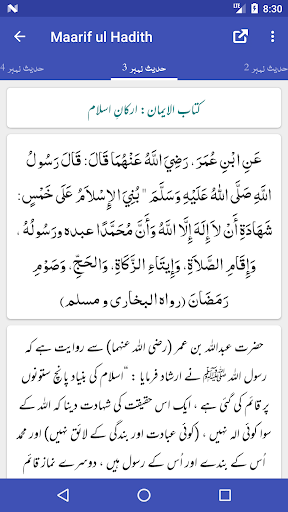 8:30
Maarif ul Hadith
حدیث نمبر 2
حدیث نمبر 3
حدیث نمبر 4
کتاب الایمان: ارکانِ اسلام
عَنِ ابْنِ عُمَرَ، رَضِيَ اللَّهُ عَنْهُمَا قَالَ: قَالَ رَسُولُ
اللَّهِ صَلَّى اللَّهُ عَلَيْهِ وَسَلَّمَ " بُنِيَ الإِسْلاَمُ عَلَى خَمْسٍ:
شَهَادَةِ أَنْ لاَ إِلَهَ إِلَّا اللَّهُ وَأَنَّ مُحَمَّدًا عبده ورَسُولُهُ،
وَإِقَامِ الصَّلاَةِ، وَإِيتَاءِ الزَّكَاةِ، وَالحَجِّ، وَصَوْمِ
رَمَضَانَ (رواه البخارى و مسلم)
حضرت عبداللہ بن عمر (رضی اللہ عنہما) سے روایت ہے کہ
رسول اللہ ﷺ نے ارشاد فرمایا : “اسلام کی بنیاد پانچ ستونوں
پر قائم کی گئی ہے ، ایک اس حقیقت کی شہادت دینا کہ اللہ کے
سوا کوئی الہ نہیں ، (کوئی عبادت اور بندگی کے لائق نہیں) اور محمد
اُس کے بندے اور اُس کے رسول ہیں ، دوسرے نماز قائم